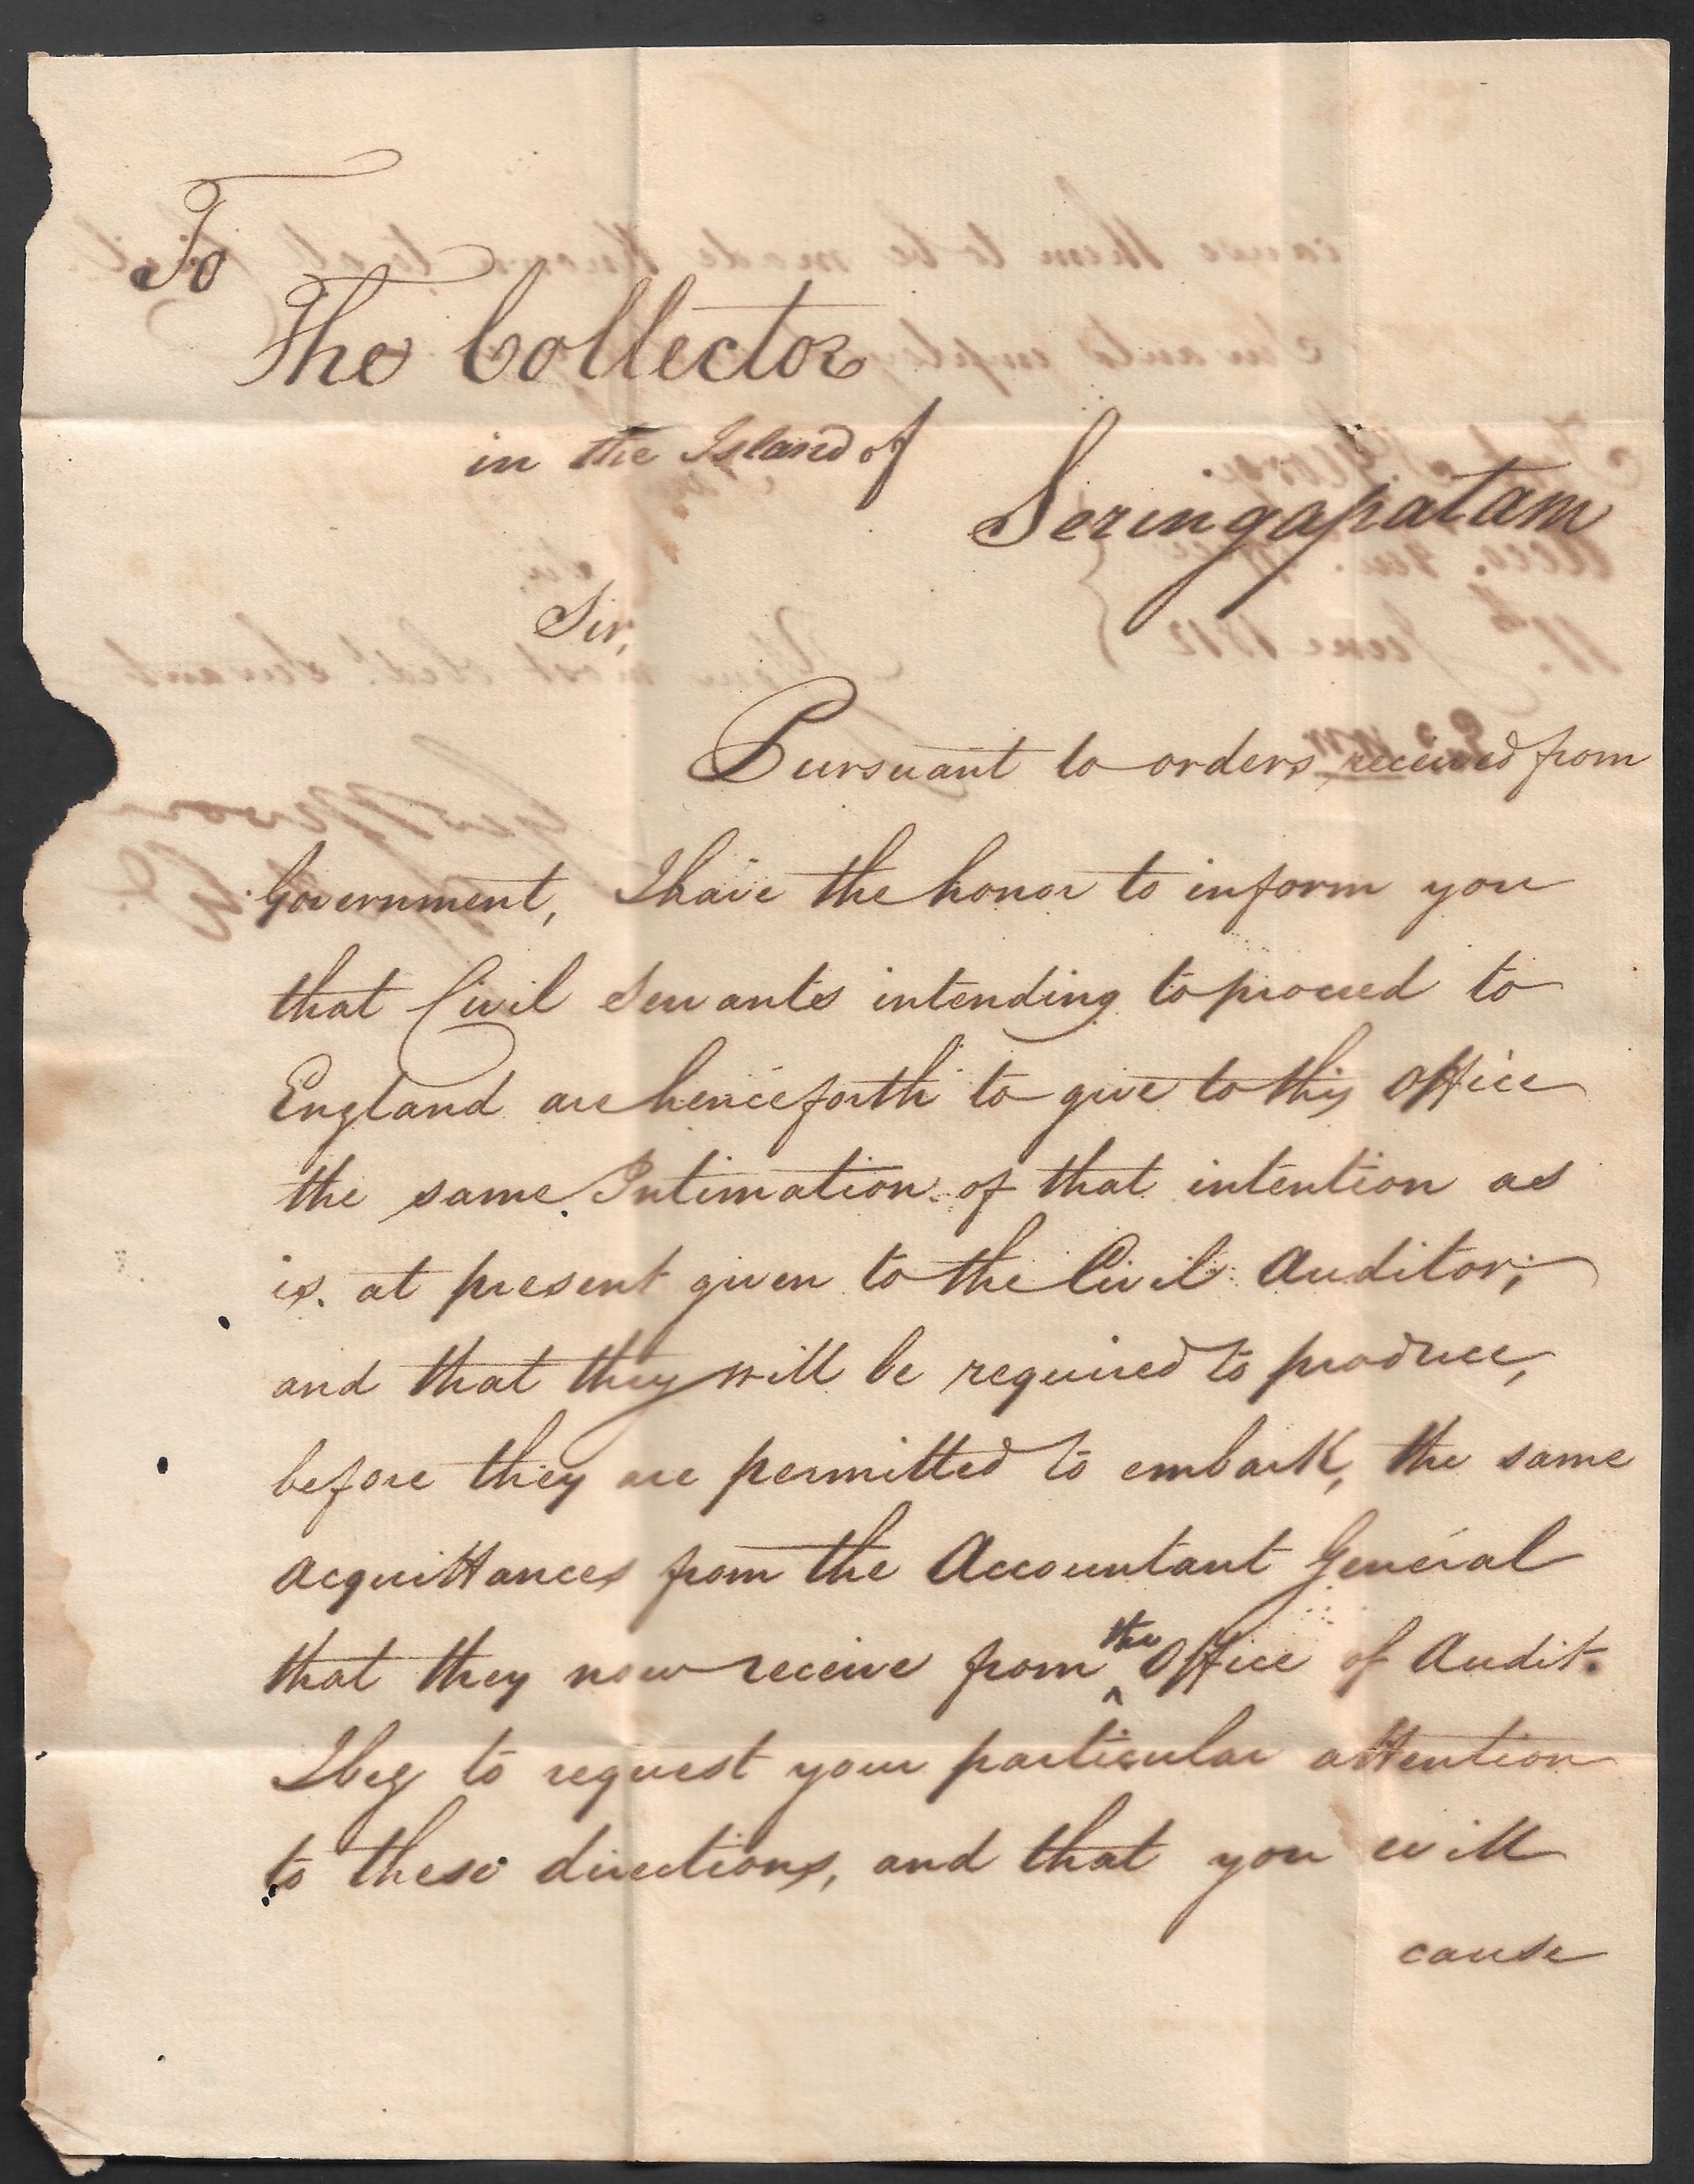 To
The Collector
in the Island of
Seringapatam
Sir,
Pursuant to orders received from
Government, I have the honor to inform you
that Civil Servants intending to proceed to
England are henceforth to give to this Office
the same Intimation of that intention as
is at present given to the Civil Auditor;
and that they will be required to produce,
before they are permitted to embark, the same
acquittances from the Accountant General
that they now receive from the Office of Audit.
I beg to request your particular attention
to these directions, and that you will
cause